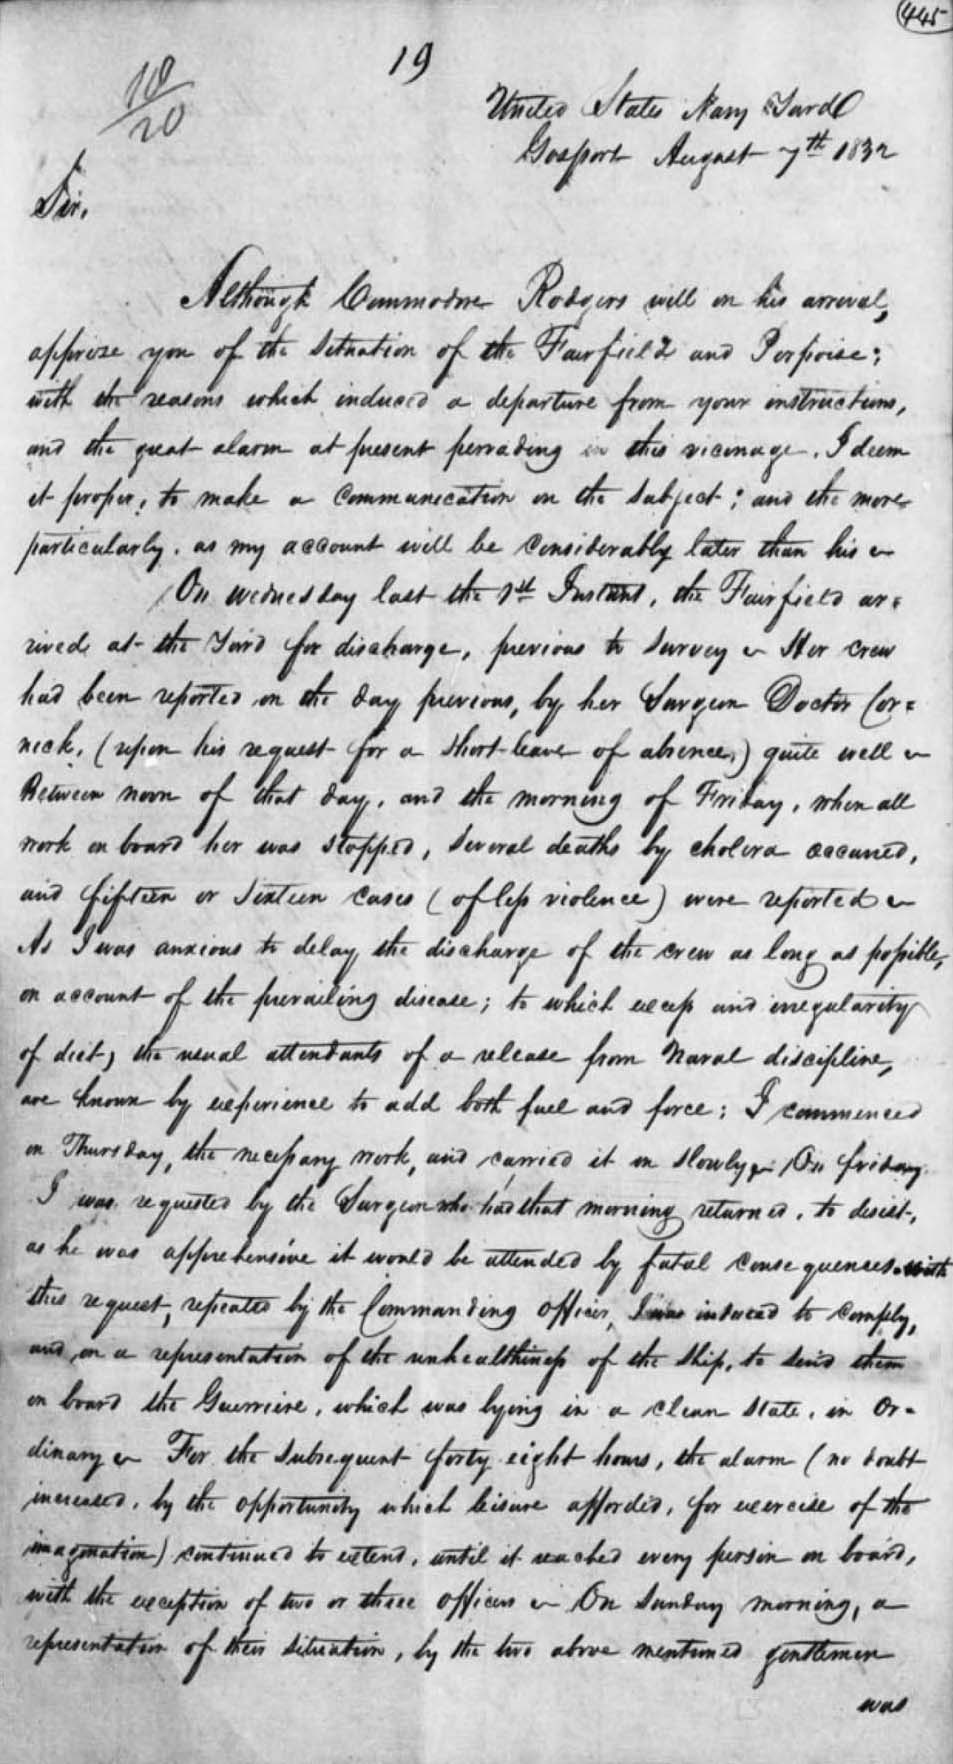 445
19
10/20
United States Navy Yard
Gosport August 7th 1832
Sir,
Although Commodore Rodgers will on his arrival,
apprize you of the situation of the Fairfield and Porpoise;
with the reasons which induced a departure from your instructions,
and the great alarm at present pervading in this vicinage. I deem
it proper, to make a communication on the subject; and the more
particularly, as my account will be considerably later than his ~
On Wednesday last the 1st Instant, the Fairfield ar=
rived at the Yard for discharge, previous to survey ~ Her crew
had been reported on the day previous, by her Surgeon Doctor Cor=
nick, (upon his request for a short leave of absence,) quite well ~
Between noon of that day, and the morning of Friday, when all
work on board her was stopped, several deaths by cholera occurred,
and fifteen or sixteen cases (of less violence) were reported ~
As I was anxious to delay the discharge of the crew as long as possible,
on account of the prevailing disease; to which excess and irregularity
of diet, the usual attendants of a release from Naval discipline,
are known by experience to add both fuel and force; I commenced
on Thursday, the necessary work, and carried it on slowly ~ On friday
I was requested by the Surgeon who had that morning returned, to desist,
as he was apprehensive it would be attended by fatal consequences. With
this request, repeated by the Commanding Officer, I was induced to comply,
and, on a representation of the unhealthiness of the Ship, to send them
on board the Guerriere, which was lying in a clean state, in Or=
dinary ~ For the subsequent forty eight hours, the alarm (no doubt
increased, by the opportunity which leisure afforded, for exercise of the
imagination) continued to extend, until it reached every person on board,
with the exception of two or three officers ~ On Sunday morning, a
representation of their situation, by the two above mentioned gentlemen
was